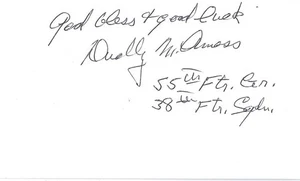 God bless & good luck
Dudley M. Amoss
55th Ftr. Grp.
38th Ftr. Sqdn.